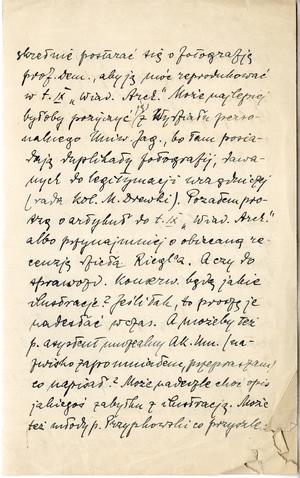 skrzętnie postarać się o fotografję
prof. Dem., aby ją móc reprodukować
w t. IX „Wiad. Arch." Może najlepiej
byłoby pożyczyć ją z Wydziału perso-
nalnego Uniw. Jag., bo tam posia-
dają duplikaty fotografij, dawa-
nych do legitymacji urzędniczej
(rada kol. M. Drewki). Pozatem pro-
szę o artykuł do t. IX „Wiad. Arch."
albo przynajmniej o obiecaną re-
cenzją dzieła Riegl'a. A czy do
sprawozd. konserw. będą jakie
ilustracje? Jeśli tak, to proszę je
nadesłać wczas. A możeby też
p. asystent muzealny Ak. Um. (na-
zwisko zapomniałem, przepraszam)
co napisał? Może nadeszle choć opis
jakiegoś zabytku z ilustracją. Może
też młody p. Przypkowski co przyszle.